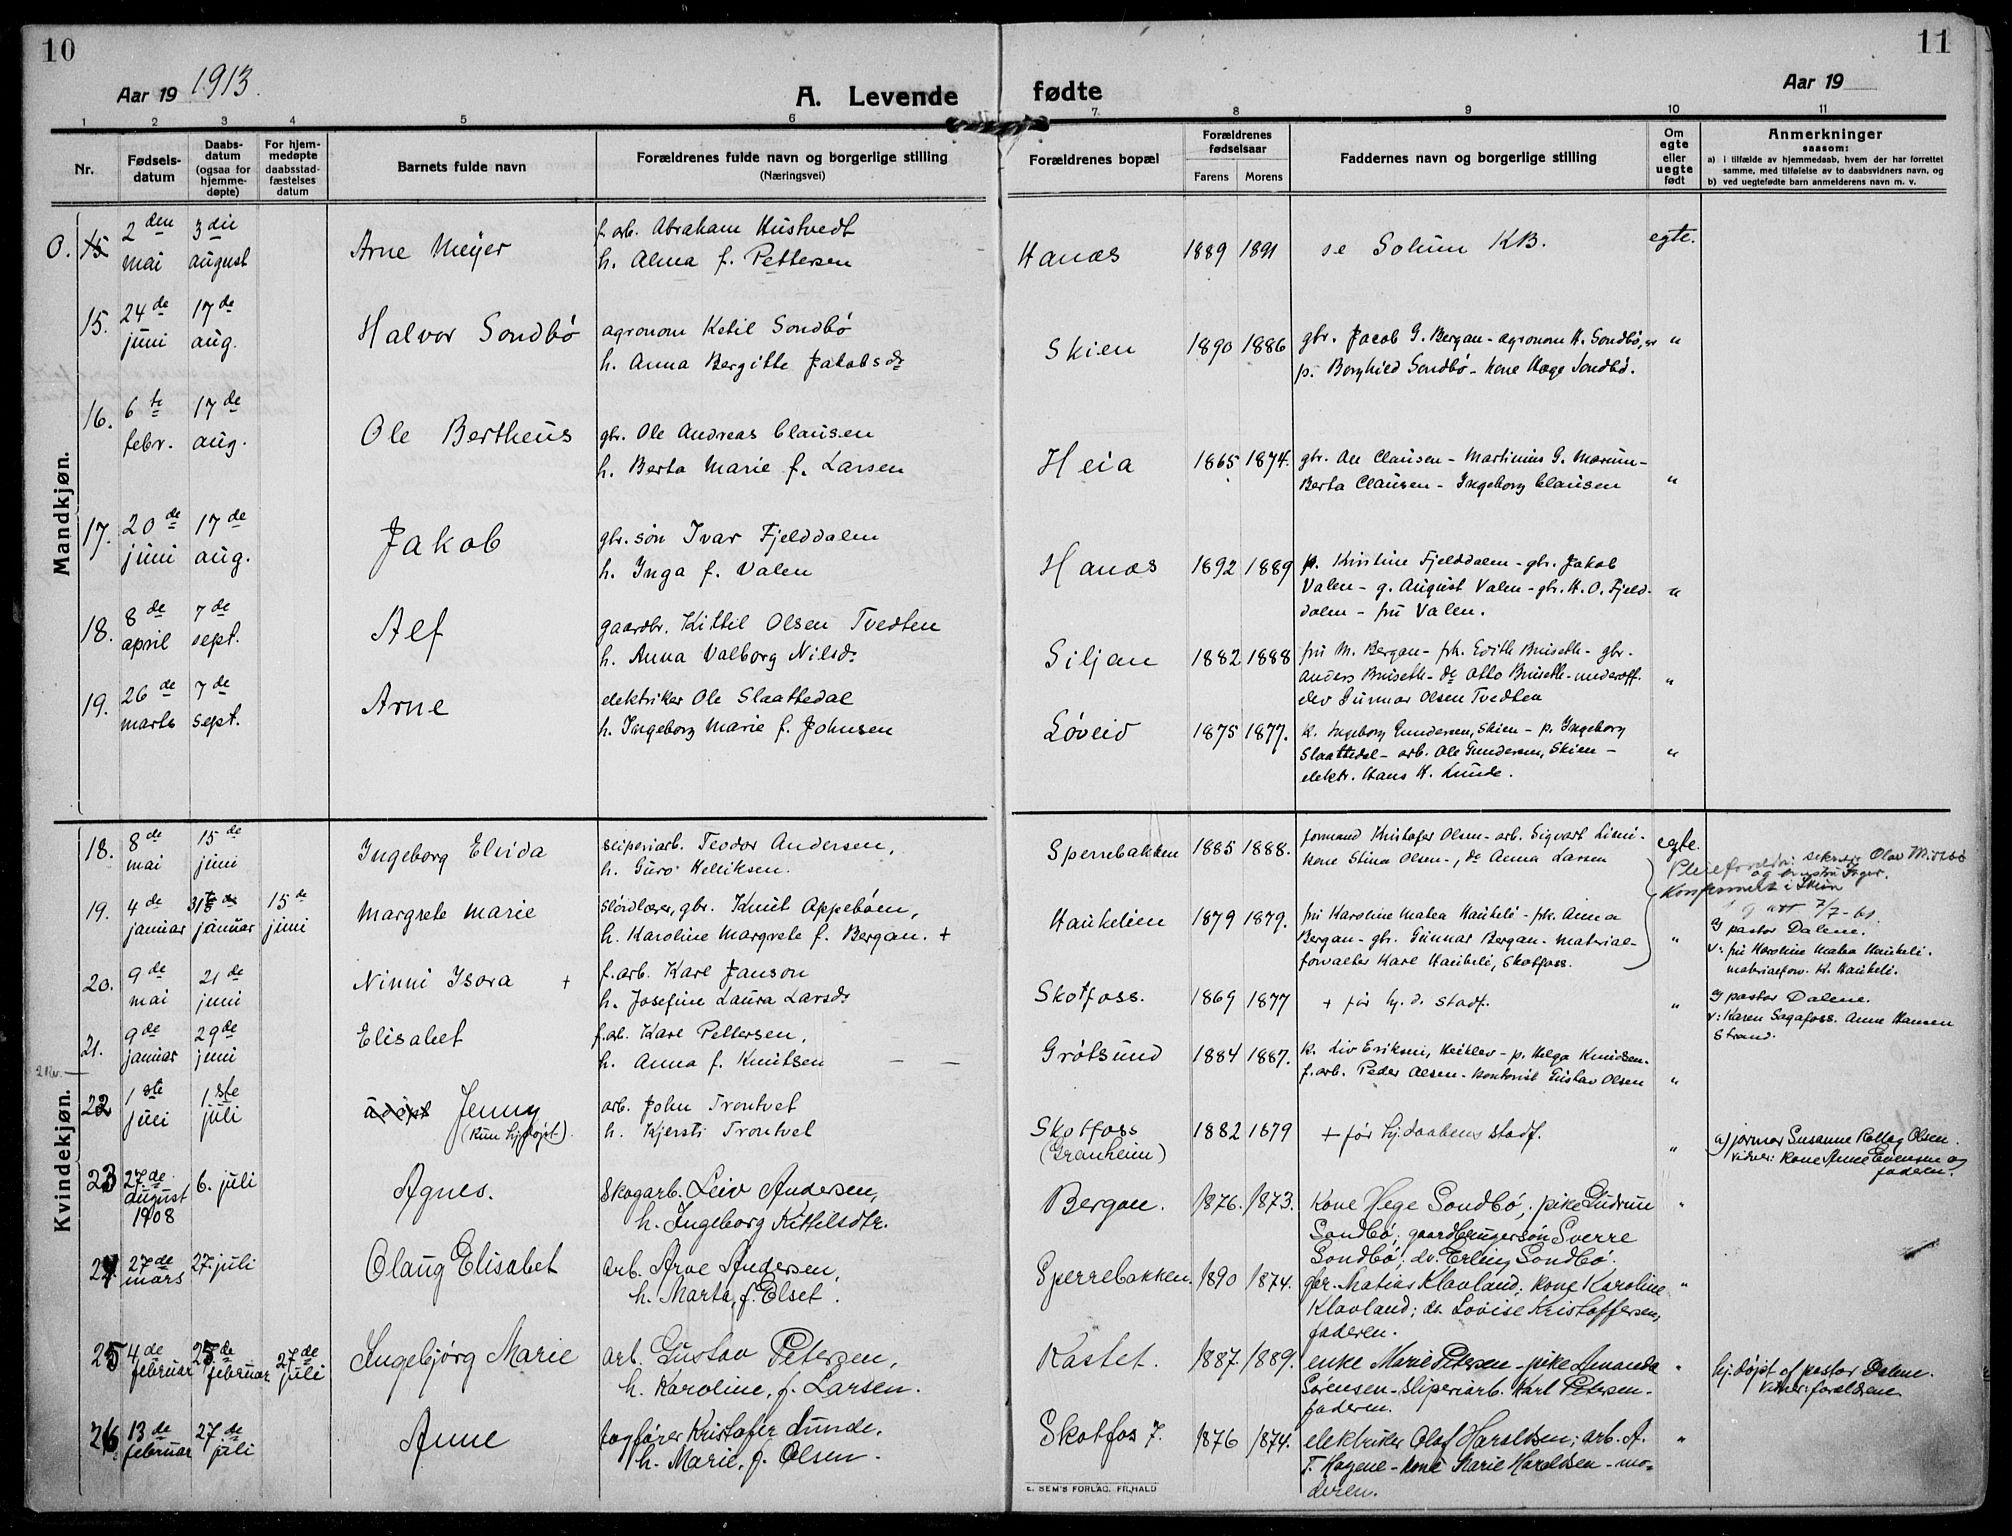 10
11
Aar 19 1913.
A. Levende fødte
Aar 19
1 2 3 4 5 6 7. 8 9 10 11
Nr.
Fødsels-
datum
Daabs-
datum
(ogsaa for
hjemme-
døpte)
For hjem-
medøpte
daabsstad-
fæstelses
datum
Barnets fulde navn
Forældrenes fulde navn og borgerlige stilling
(Næringsvei)
Forældrenes bopæl
Forældrenes
fødselsaar
Farens Morens
Faddernes navn og borgerlige stilling
Om
egte
eller
uegte
født
Anmerkninger
saasom:
a) i tilfælde av hjemmedaab, hvem der har forrettet
samme, med tilføielse av to daabsvidners navn, og
b) ved uegtefødte barn anmelderens navn m. v.
Mandkjøn.
0. 15 2 den 3 die f. arb. Abraham Hustvedt
mai august Arne Meyer h. Alma f. Pettersen Hanæs 1889 1891 se Solum KB. egte.
15. 24 de 17 de Halvor Sondbö agronom Ketil Sondbö gbr. Jacob G. Bergan - agronom H. Sondbö, "
juni aug. h. Anna Bergitte Jakobsdr Skien 1890 1886 p. Borghild Sondbö - kone Hæge Sondbö.
16. 6 te 17 de Ole Bertheus gbr. Ole Andreas Clausen
febr. aug. h. Berta Marie f. Larsen Heia 1865 1874. gbr. Ole Clausen - Martinius G. -
Berta Clausen - Ingeborg Clausen "
17. 20 de 17 de Jakob gbr. søn Ivar Fjelddalen
juni aug. h. Inga f. Valen Hanæs 1892 1889 p. Kristine Fjelddalen - gbr. Jakob
Valen - g. August Valen - gbr. H. O. Fjeld- "
dalen - fru Valen.
18. 8 de 7 de Alf gaardbr. Kittil Olsen Tvedten
april sept. h. Anna Valborg Nilsdr Siljan 1882 1888 fru M. Bergan - frk. Edith Bruseth - gbr.
Anders Bruseth - do Otto Bruseth - underoff. "
elev Gunnar Olsen Tvedten
19. 26 de 7 de Arne elektriker Ole Slaattedal
marts sept. h. Ingeborg Marie f. Johnsen Løveid 1875 1877. k. Ingeborg Gundersen, Skien - p. Ingeborg
Slaattedal - arb. Ole Gundersen, Skien - "
elektr. Hans H. Lunde.
Kvindekjøn.
18. 8 de 15 de Ingeborg Elvida sliperiarb. Teodor Andersen,
mai juni h. Guro Helliksen. Sperrebakken 1885 1888. formand Kristofer Olsen - arb. Sigvart -
kone Stina Olsen -, do Anna Larsen egte.
Pleieforeldr: sekretær Olav
og hustru Inger.
Konfirmert i Skien
7/7-61.
19. 4 de 31te 15 de Margrete Marie sløidlærer, gbr. Knut Appebøen,
januar januar juni h. Karoline Margrete f. Bergan. + Haukelien 1879 1879. fru Karoline Matea Haukeli - frk. Anna
Bergan - gbr. Gunnar Bergan - material- "
forvalter Karl Haukeli, Skotfoss.
pastor Dalene.
v: fru Karoline Matea Haukeli.
materialforv. K. Haukeli.
20. 9 de 21 de Ninni Isora + f. arb. Karl Janson
mai juni h. Josefine Laura Larsdr Skotfoss. 1869 1877 + før hj. d. stadf. "
pastor Dalene.
v: Karen Sagafoss. Anne Hansen
Strand.
21. 9 de 29 de Elisabet f. arb. Karl Pettersen,
januar juni h. Anna f. Knutsen Grøtsund 1884 1887. k. Liv Eriksen, - p. Helga Knudsen.
f. arb. Peder Olsen - kontorist Gustav Olsen "
22 1 ste 1. ste Jenny arb. John Trontvet
juli juli (kun hj. døpt). h. Kjersti Trontvet Skotfoss 1882 1879 + før hj. daabens stadf. "
(Granheim)
a) jormor Susanne Rollag Olsen.
vidner: kone Anne Evensen og
faderen.
23 27 de 6. juli Agnes. skogarb. Leiv Andersen,
august h. Ingeborg Kittilsdtr.
1908 Bergan. 1876. 1873. Kone Hege Sondbö; pike Gudrun "
Sondbö; gaardbrugersøn Sverre
Sondbö; do. Erling Sondbö.
24 27 de 27. juli Olaug Elisabet arb. Arve Andersen,
mars h. Marta, f. Elset. Sperrebakken. 1890 1874. gbr. Matias Klovland; kone Karoline "
Klovland; do. Lovise Kristoffersen,
faderen.
25 4 de 25 de 27 de Ingebjörg Marie arb. Gustav Petersen,
februar februar juli h. Karoline, f. Larsen. Kastet. 1887. 1889. enke Marie Petersen - pike Amanda "
Sørensen - sliperiarb. Karl Petersen -
faderen.
hj. døpt af pastor Dalene.
vidner: forældrene.
26 13 de 27 de Anne togfører Kristofer Lunde,
februar juli h. Marie, f. Olsen. Skotfos 7. 1876 1874. elektriker Olaf Haraldsen; arb. A. "
T. Hagene - kone Marie Haraldsen - mo-
deren.
E. SEM'S FORLAG. FR.HALD